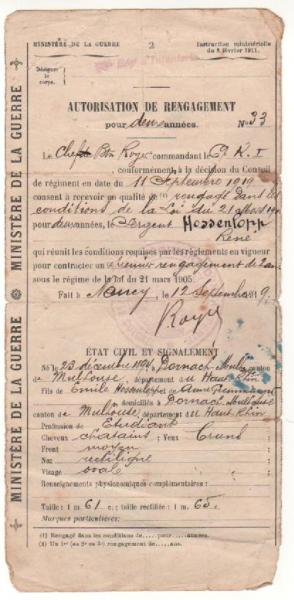 MINISTÈRE DE LA GUERRE
2
Instruction ministérielle
du 8 février 1911.
Désigner
le
corps.
AUTORISATION DE RENGAGEMENT
pour deux années. No 33
Le Chef de Bon Royer commandant le
conformément, à la décision du Conseil
de régiment en date du 11 Septembre 1919
consent à recevoir en qualité de rengagé dans les
conditions de la Loi du 21 Mars 1905
pour deux années, le Sergent Hossenlopp
René
qui réunit les conditions requises par les règlements en vigueur
pour contracter un premier rengagement de 2 ans
sous le régime de la loi du 21 mars 1905.
Fait à Nancy, le 12 Septembre 1919.
Royer
ÉTAT CIVIL ET SIGNALEMENT
Né le 23 décembre, Dornach, canton
de Mulhouse, département du Haut Rhin
Fils de Emile Hossenlopp et de Anne
domiciliés à Dornach Mulhouse
canton de Mulhouse, département du Haut Rhin
Profession de Etudiant
Cheveux chatains; Yeux
Front moyen
Nez rectiligne
Visage ovale
Renseignements physionomiques complémentaires :
Taille: 1 m. 61 c. ; taille rectifiée : 1 m. 65 c.
Marques particulières:
(1) Rengagé dans les conditions de..... pour..... années.
(2) Un 1er (ou 2e ou 3e) rengagement de....ans.
MINISTÈRE DE LA GUERRE ✳ MINISTÈRE DE LA GUERRE ✳ MINISTÈRE DE LA GUERRE